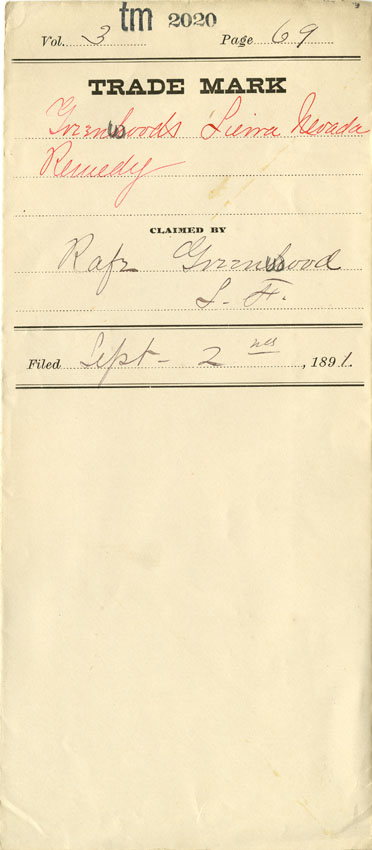 tm 2020
Vol. 3 Page 69
TRADE MARK
Greenwoods Sierra Nevada
Remedy
CLAIMED BY
Greenwood
S. F.
Filed Sept - 2nd, 1891.